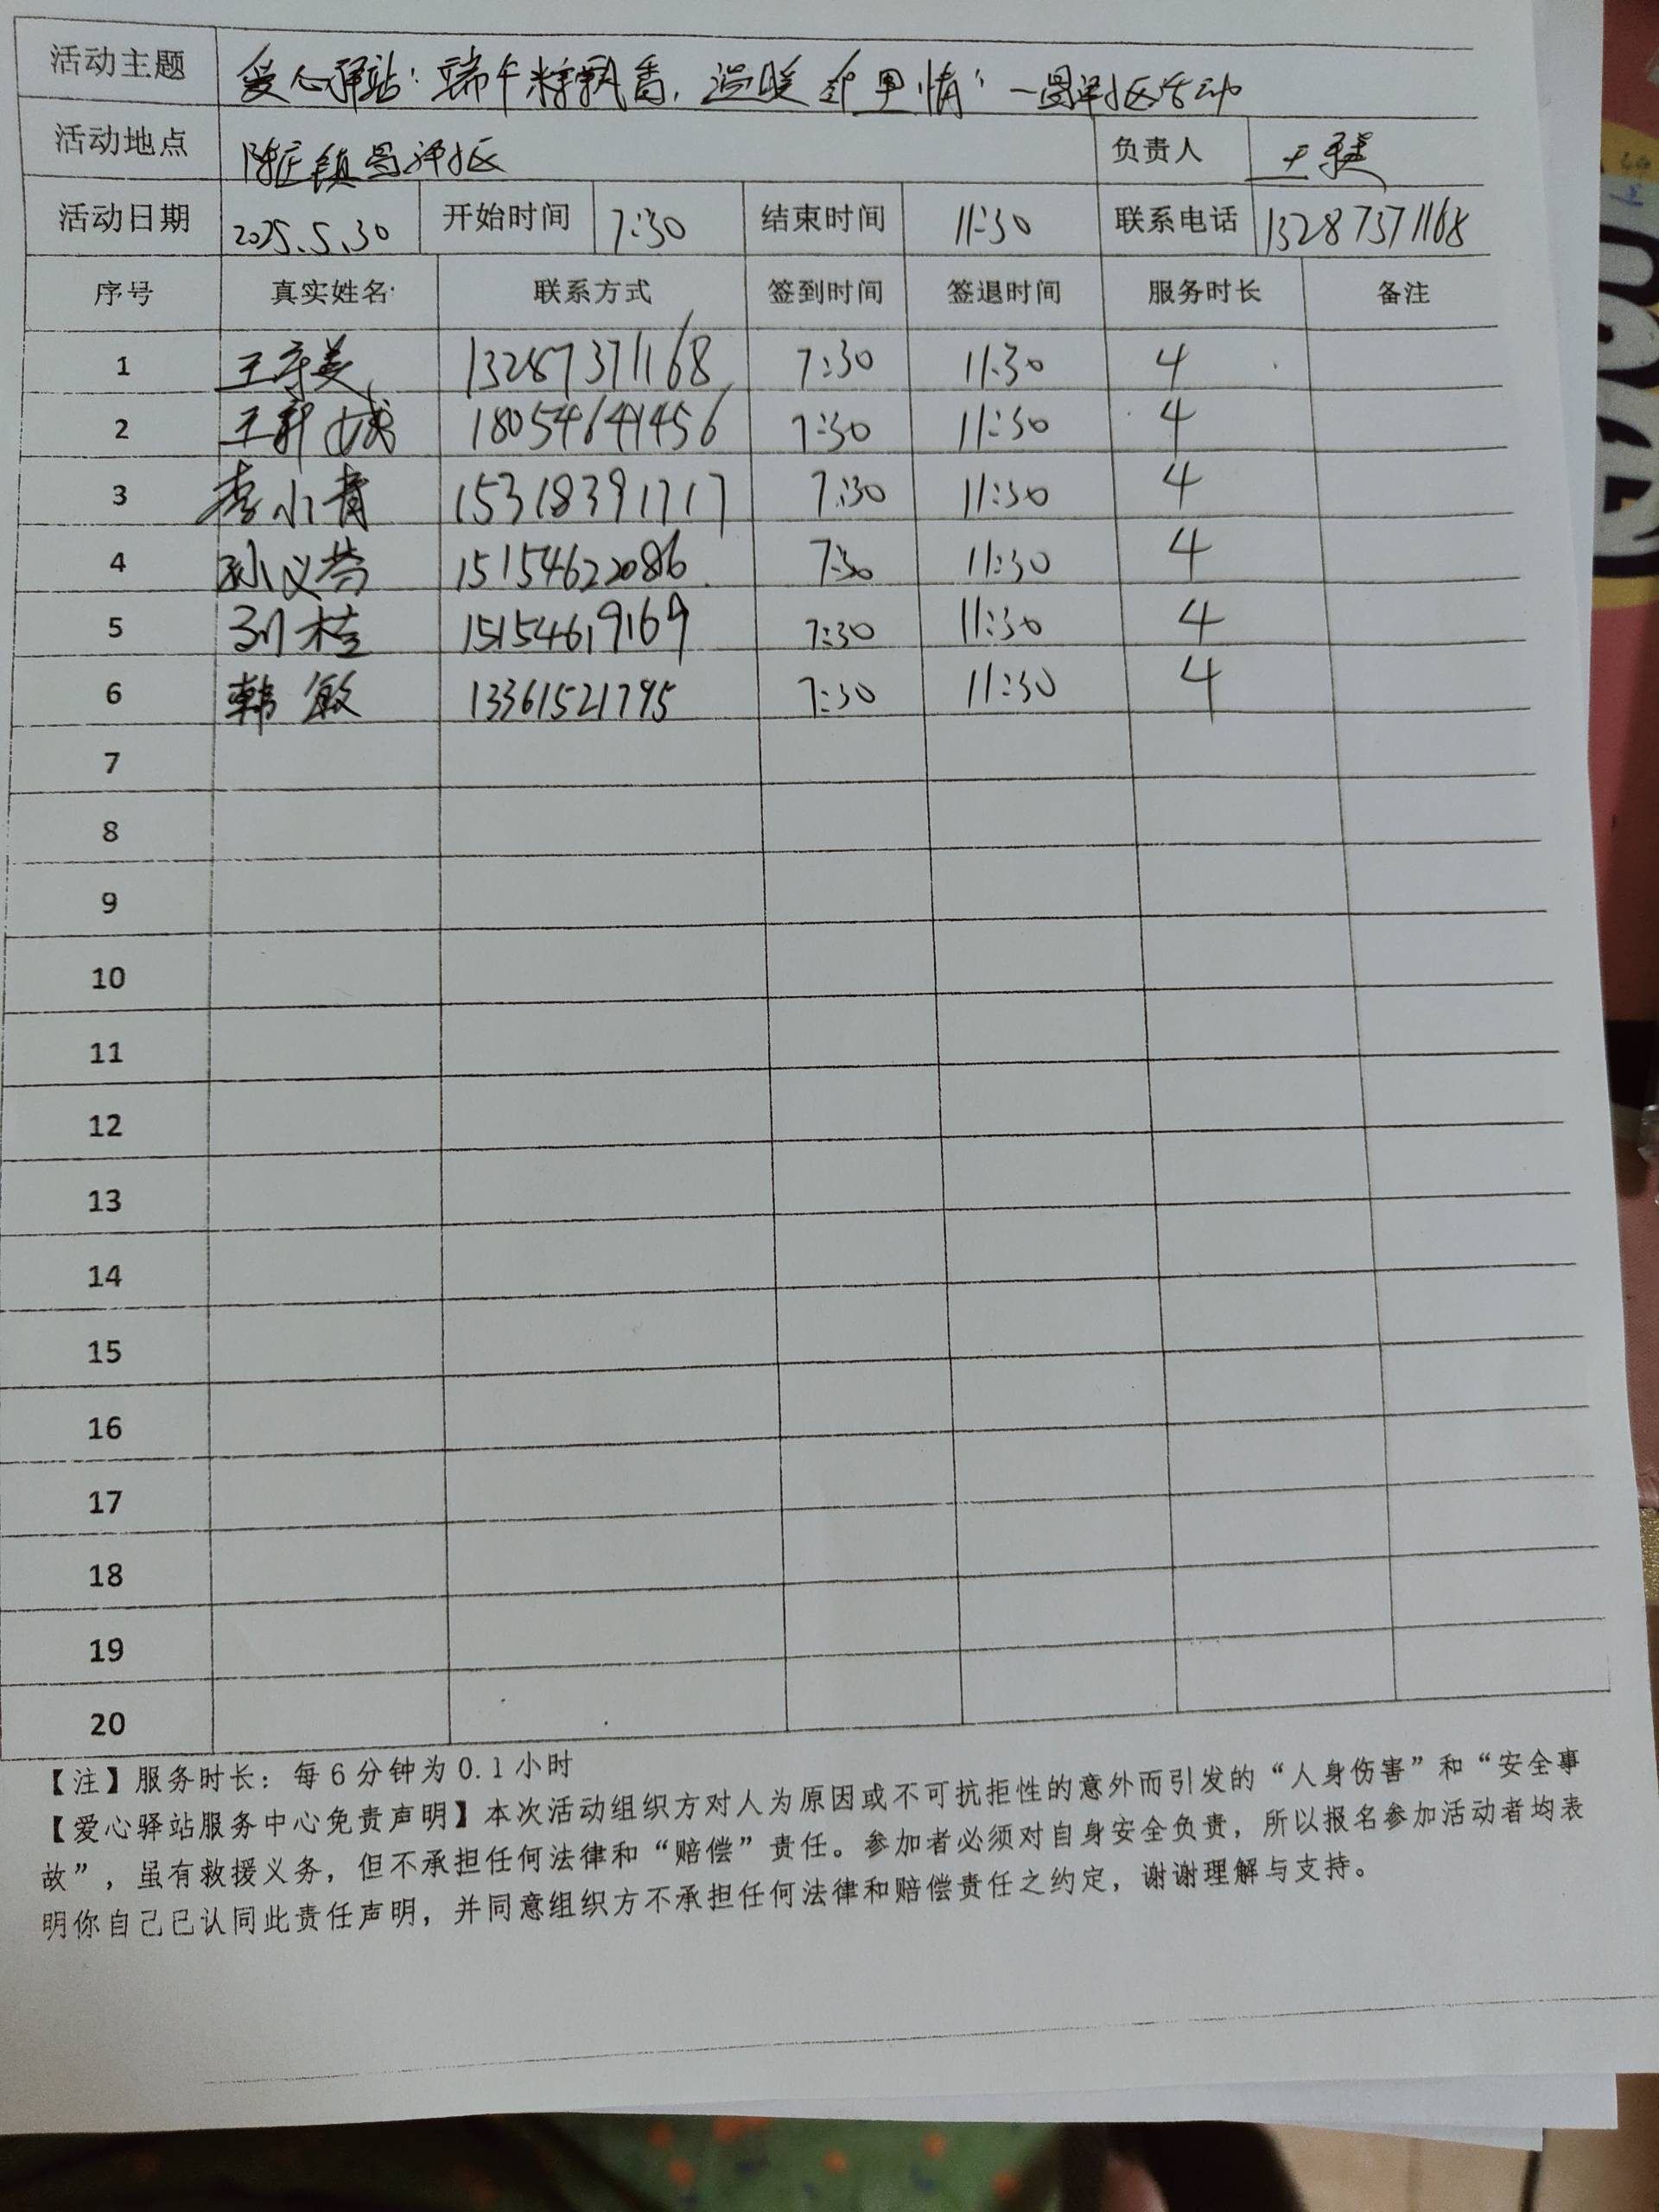 活动主题 爱心驿站：端午粽飘香，温暖 情'一 社区活动
活动地点 陈庄镇 社区 负责人 王
活动日期 2025.5.30 开始时间 7:30 结束时间 11:30 联系电话 13287371168
序号 真实姓名 联系方式 签到时间 签退时间 服务时长 备注
1 王 美 13287371168 7:30 11:30 4
2 王 18054641456 7:30 11:30 4
3 李小青 15318391717 7:30 11:30 4
4 孙义芳 15154622086 7:30 11:30 4
5 刘桂 15154619169 7:30 11:30 4
6 韩敏 13361521795 7:30 11:30 4
7
8
9
10
11
12
13
14
15
16
17
18
19
20
【注】服务时长：每6分钟为0.1小时
【爱心驿站服务中心免责声明】本次活动组织方对人为原因或不可抗拒性的意外而引发的“人身伤害”和“安全事
故”，虽有救援义务，但不承担任何法律和“赔偿”责任。参加者必须对自身安全负责，所以报名参加活动者均表
明你自己已认同此责任声明，并同意组织方不承担任何法律和赔偿责任之约定，谢谢理解与支持。